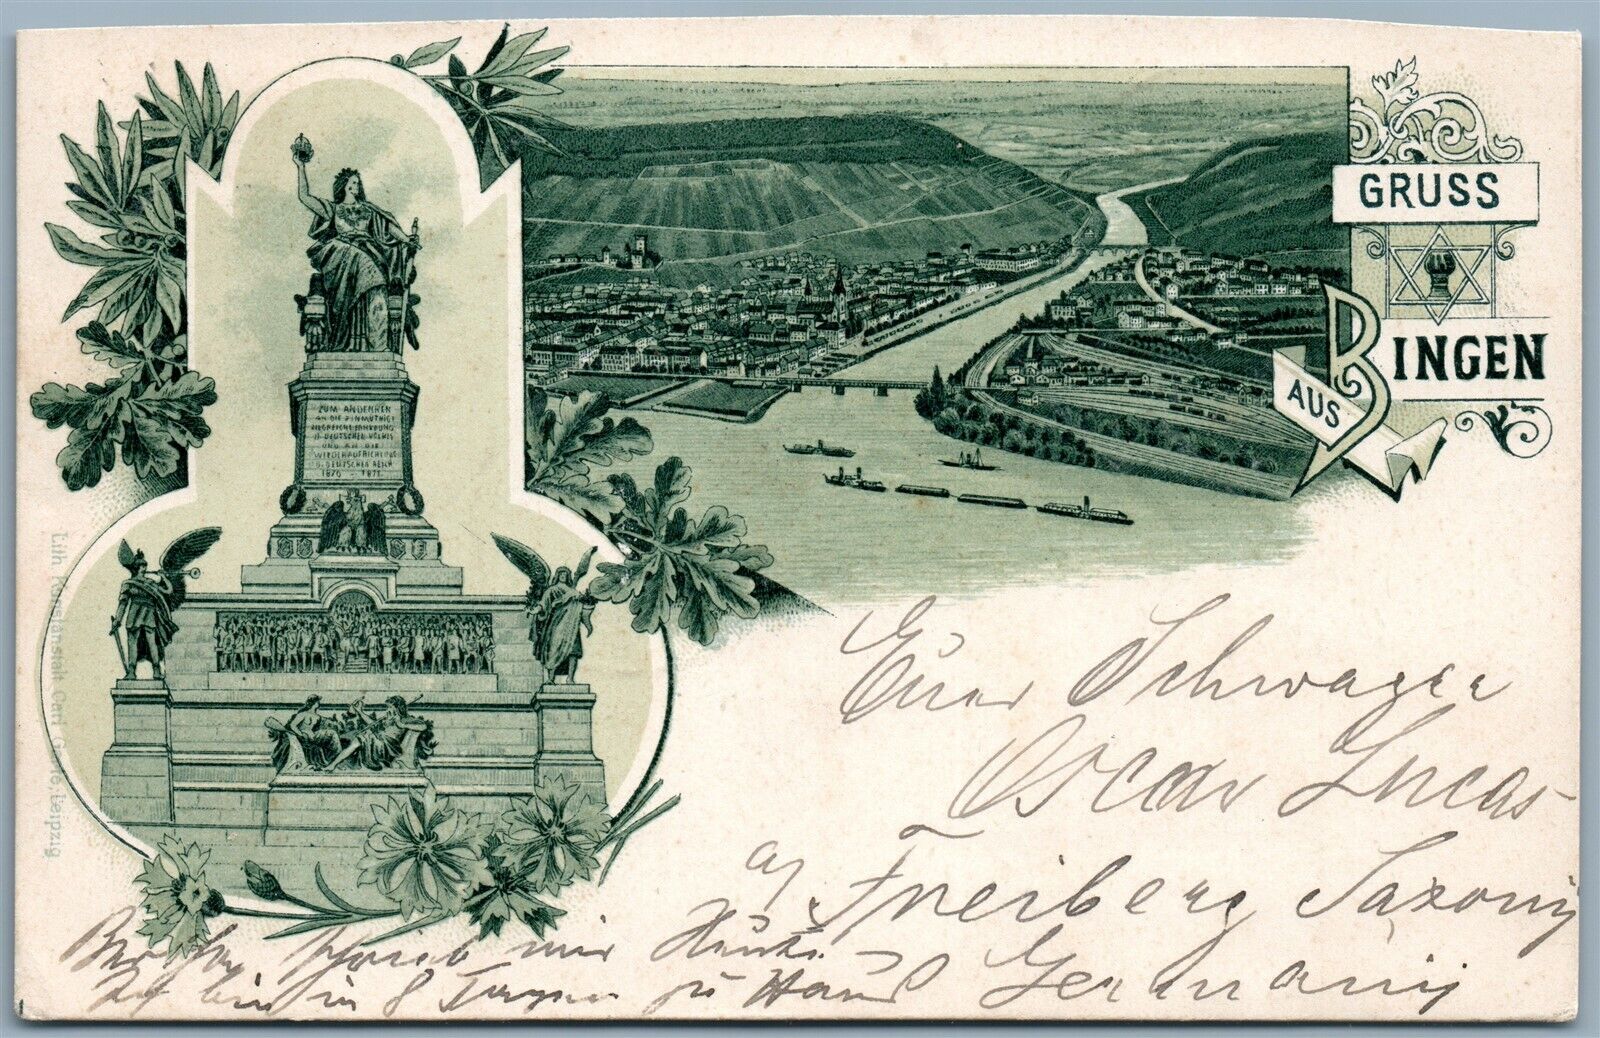 GRUSS
AUS
BINGEN
ZUM ANDENKEN
AN DIE EINMUTHIGE
SIEGREICHE ERHEBUNG
D. DEUTSCHEN VOLKES
UND AN DIE
WIEDERAUFRICHTUNG
D. DEUTSCHEN REICH
1870 - 1871
Lith. Kunstanstalt Carl Garte, Leipzig
Euer Schwager
Oscar Lucas
Freiberg Saxony
Germany
schreib mir
Ich bin in 8 Tagen zu Haus